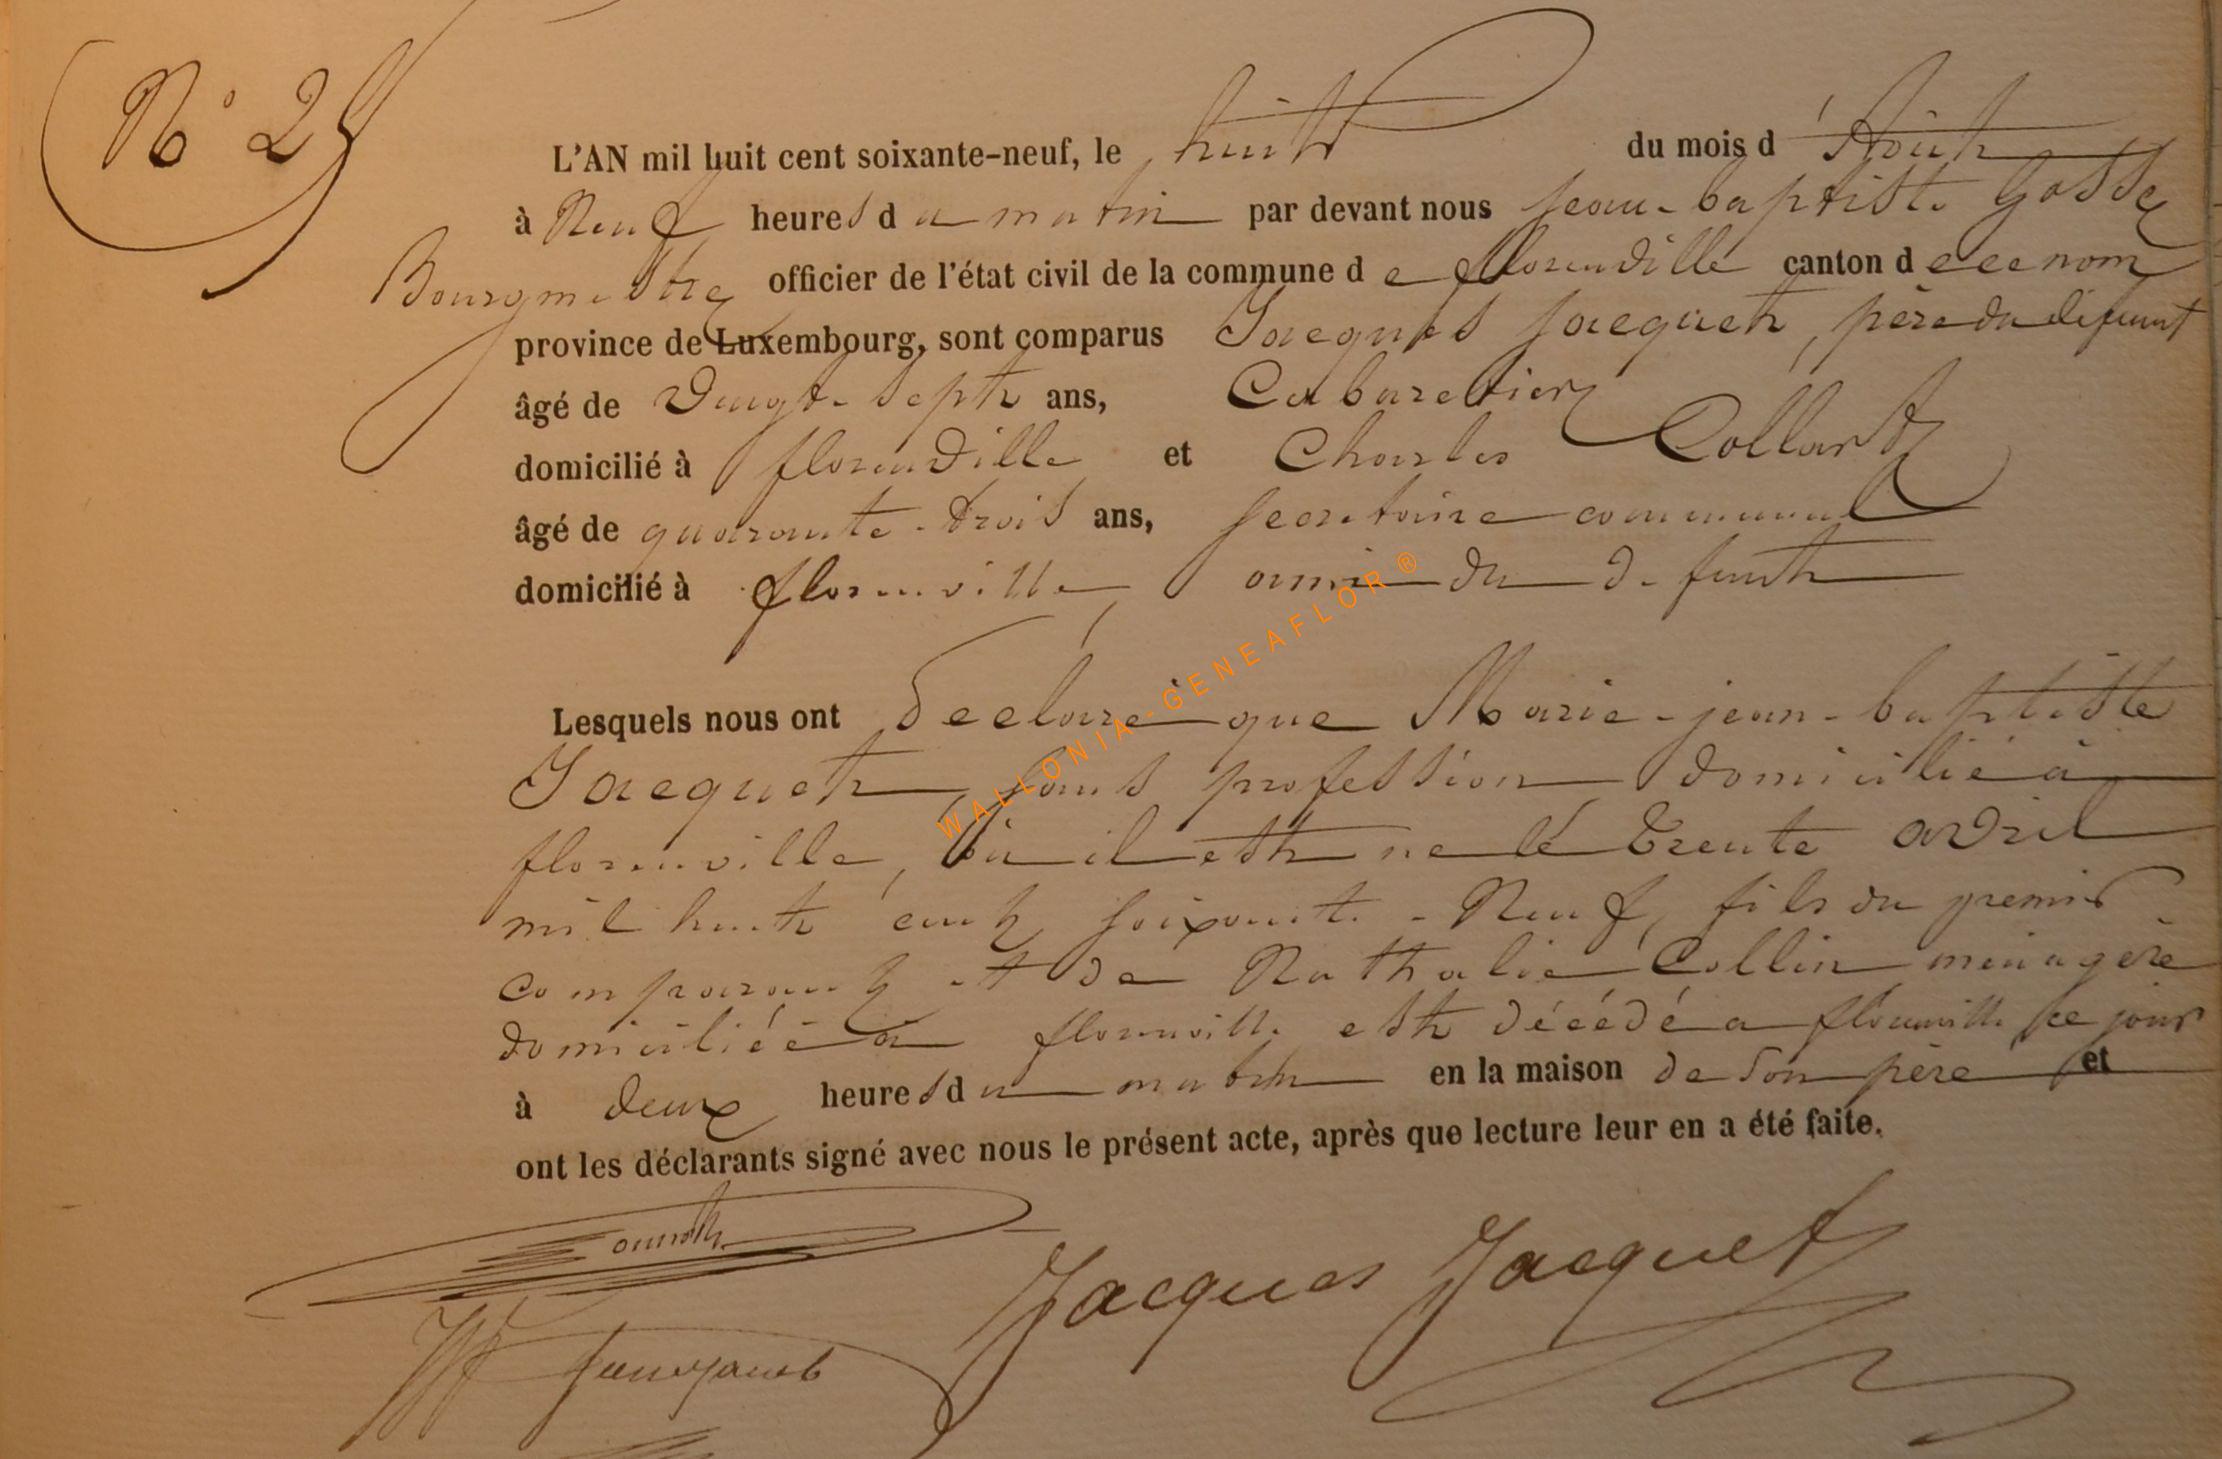 N° 25
L'AN mil huit cent soixante-neuf, le huit du mois d'Août
à Neuf heures du matin par devant nous Jean-baptiste Gosse
Bourgmestre officier de l'état civil de la commune de florenville canton de ce nom
province de Luxembourg, sont comparus Jacques Jacquet, père du défunt
âgé de vingt-sept ans, Cabaretier
domicilié à florenville et Charles Collart
âgé de quarante-trois ans, Secretaire communal
domicilié à florenville, ami du defunt
Lesquels nous ont declaré que Marie-jean-baptiste
Jacquet, sans profession domicilié à
florenville, où il est né le trente avril
mil huit cent soixante-Neuf, fils du premier
comparant et de Nathalie Collin ménagère
domiciliée à florenville est décédé a florenville ce jour
à deux heures du matin en la maison de son père et
ont les déclarants signé avec nous le présent acte, après que lecture leur en a été faite.
Jacques Jacquet
WALLONIA-GENEAFLOR ®